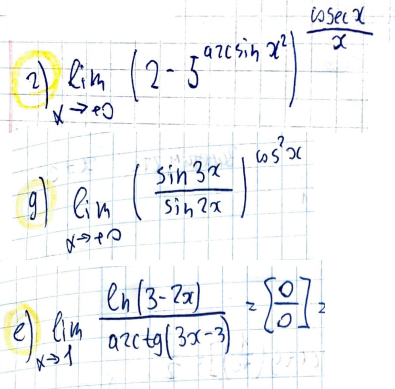 г) lim x→+0 (2 - 5^(arcsin x²))^(cosec x / x)
д) lim x→+0 (sin 3x / sin 2x)^(cos² x)
е) lim x→1 ln(3-2x) / arctg(3x-3) = [0/0] =